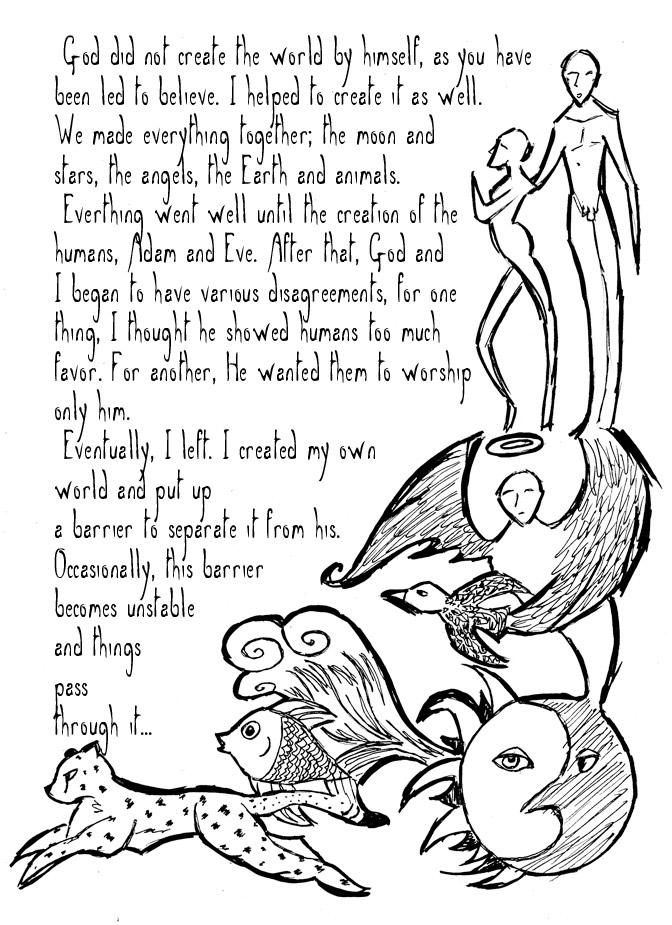 God did not create the world by himself, as you have
been led to believe. I helped to create it as well.
We made everything together; the moon and
stars, the angels, the Earth and animals.
Everthing went well until the creation of the
humans, Adam and Eve. After that, God and
I began to have various disagreements, for one
thing, I thought he showed humans too much
favor. For another, He wanted them to worship
only him.
Eventually, I left. I created my own
world and put up
a barrier to separate it from his.
Occasionally, this barrier
becomes unstable
and things
pass
through it...